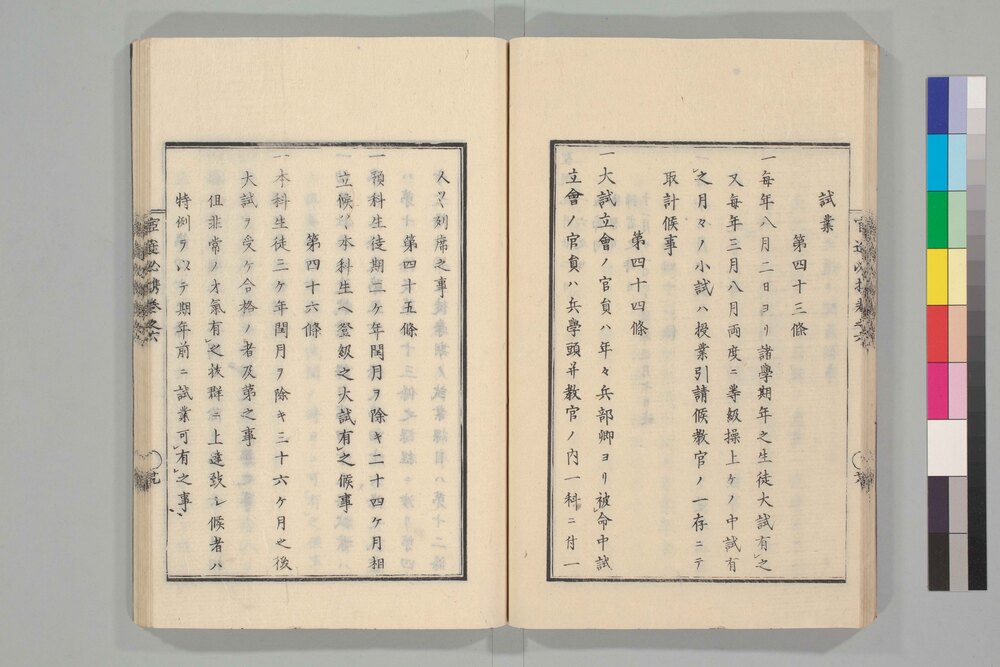 試業
第四十三條
一每年八月二日ヨリ諸學期年之生徒大試有之
又每年三月八月両度ニ等級操上ケノ中試有
之月々ノ小試ハ授業引請候教官ノ一存ニテ
取計候事
第四十四條
一大試立會ノ官員ハ年々兵部卿ヨリ被命中試
立會ノ官員ハ兵學頭并教官ノ内一科ニ付一
人ツヽ列席之事
第四十五條
一預科生徒期二ケ年閏月ヲ除キ二十四ケ月相
立候ハヽ本科生ヘ登級之大試有之候事
第四十六條
一本科生徒三ケ年閏月ヲ除キ三十六ケ月之後
大試ヲ受ケ合格ノ者及第之事
但非常ノ才氣有之抜群ニ上達致シ候者ハ
特例ヲ以テ期年前ニ試業可有之事